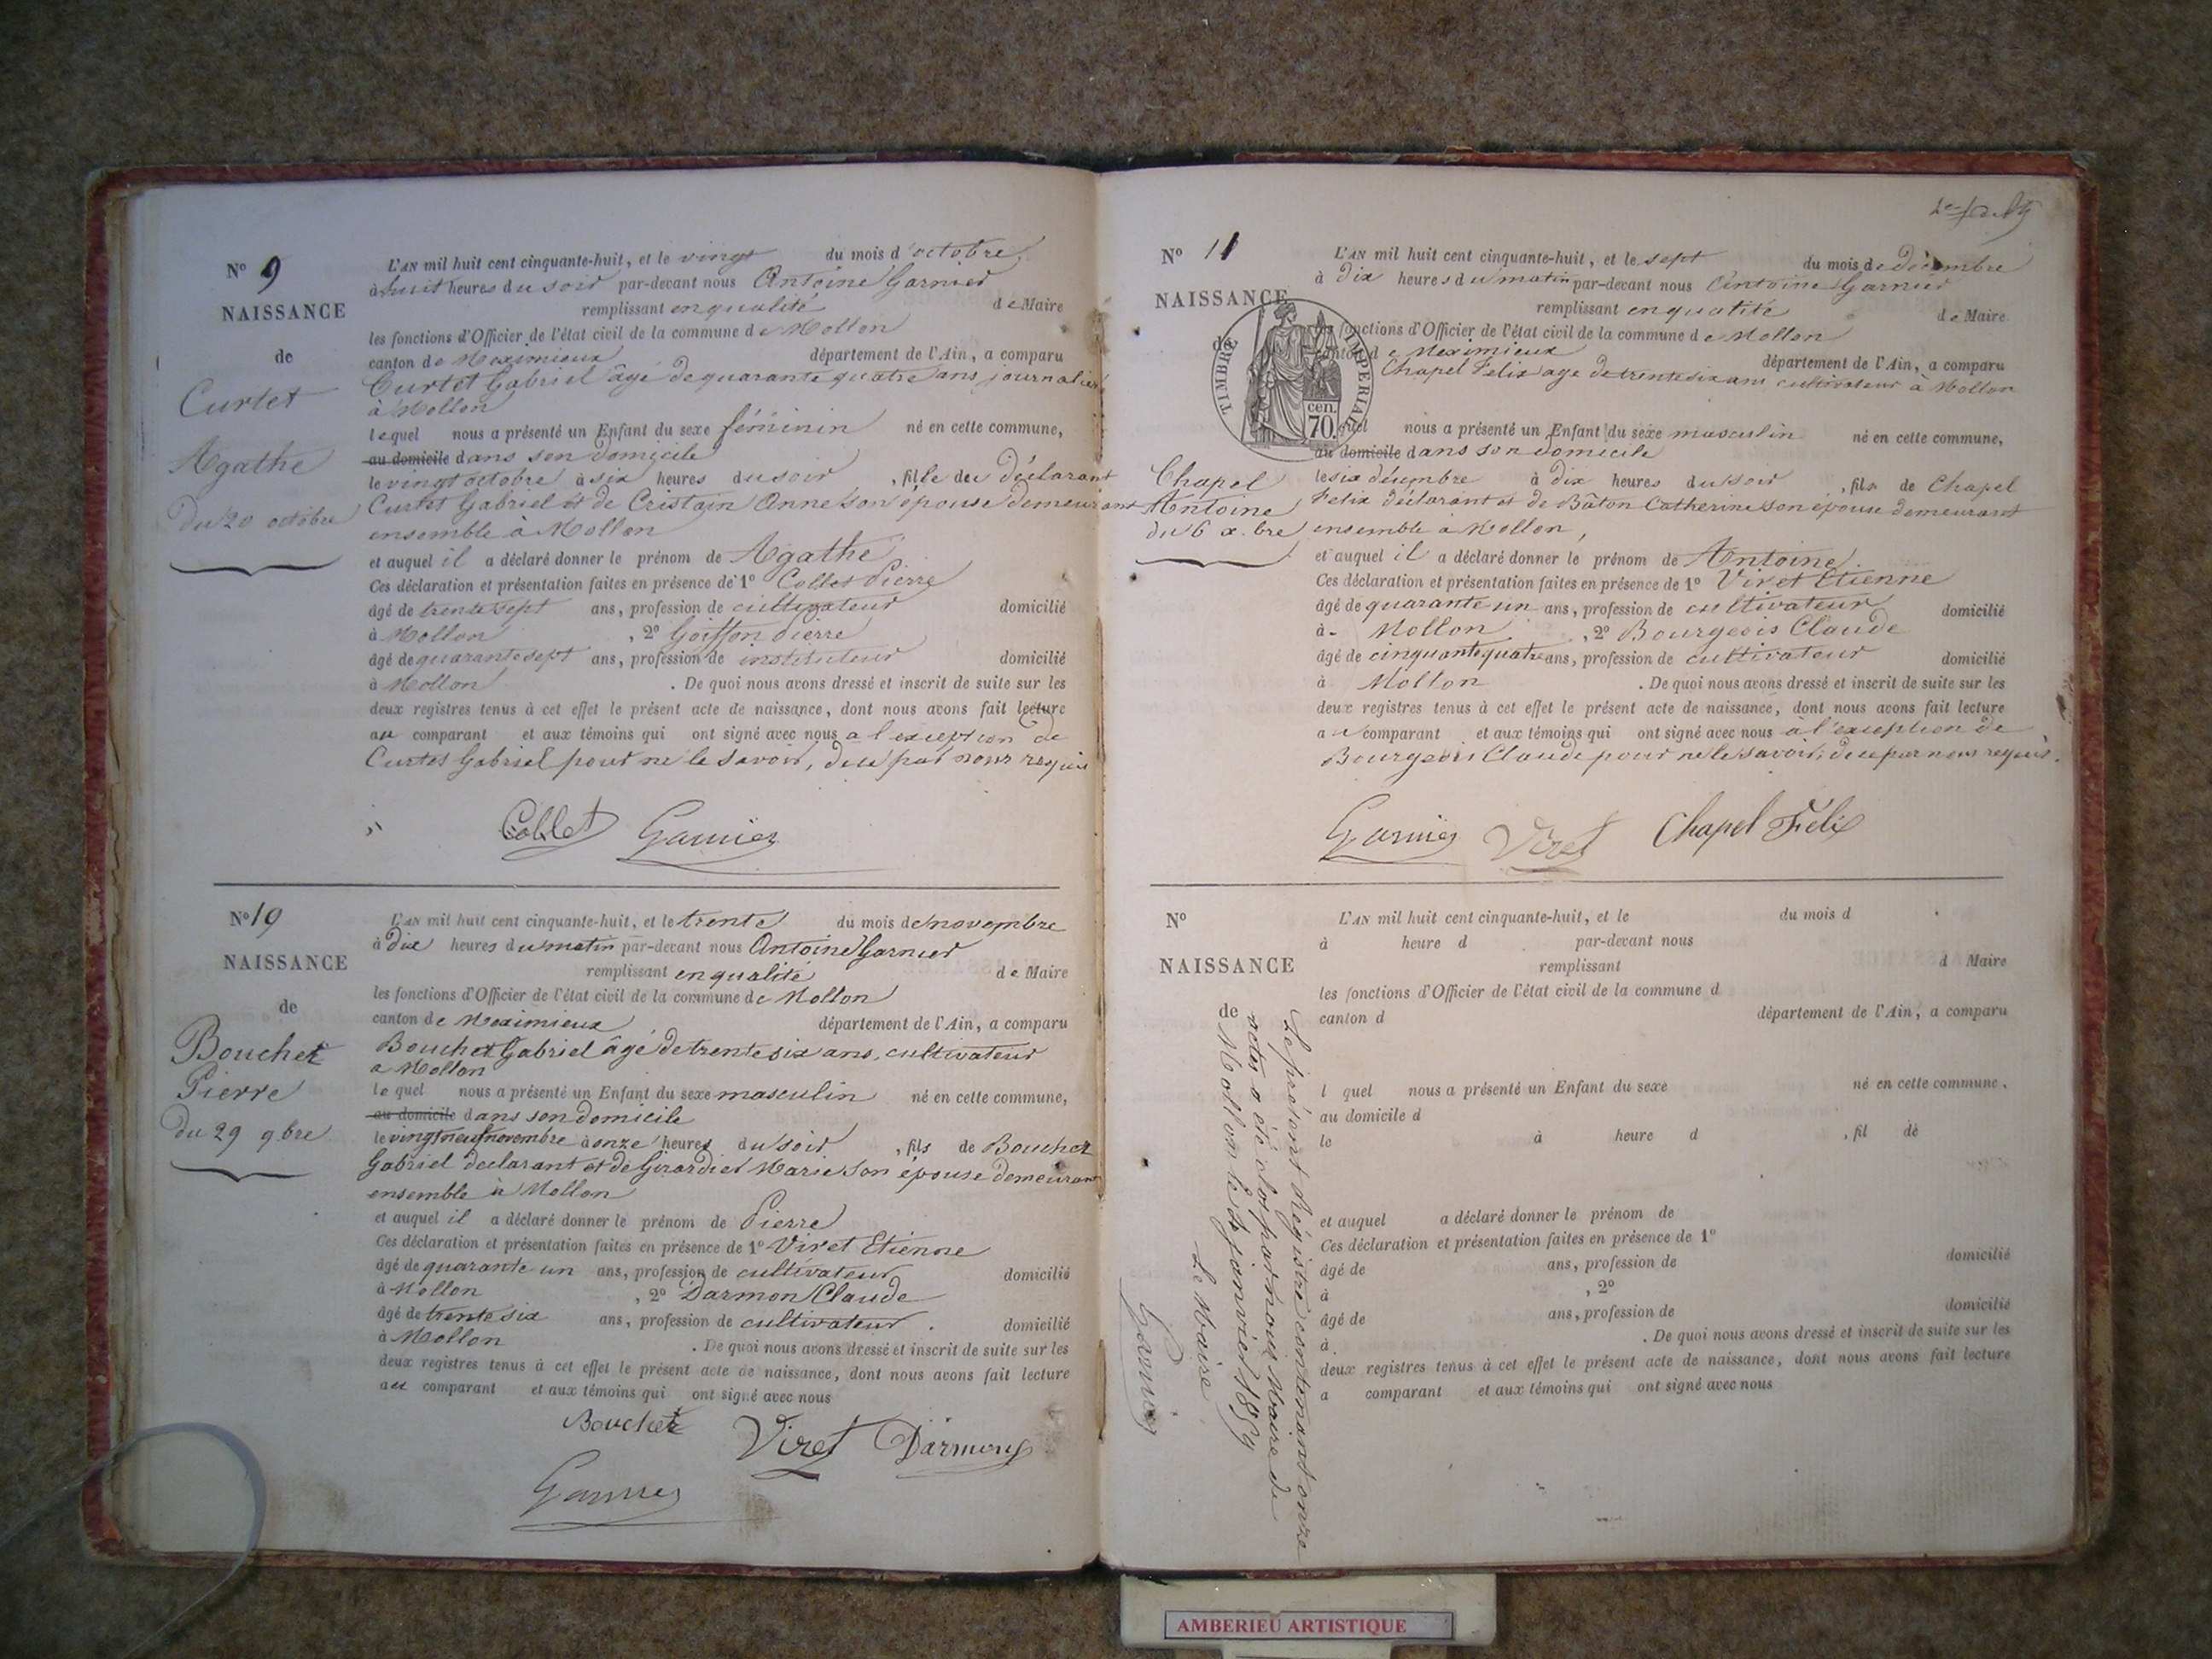 Nº 9
NAISSANCE
de
Curtet
Agathe
du 20 octobre
L'AN mil huit cent cinquante-huit, et le vingt du mois d'octobre
à huit heures du soir par-devant nous Antoine Garnier
remplissant en qualité de Maire
les fonctions d'Officier de l'état civil de la commune de Mollon
canton de Meximieux département de l'Ain, a comparu
Curtet Gabriel âgé de quarante quatre ans, journalier
à Mollon
lequel nous a présenté un Enfant du sexe féminin né en cette commune,
au domicile dans son domicile
le vingt octobre à six heures du soir, fille du déclarant
Curtet Gabriel et de Cristain Anne son épouse demeurant
ensemble à Mollon
et auquel il a déclaré donner le prénom de Agathe
Ces déclaration et présentation faites en présence de 1º Collet Pierre
âgé de trente sept ans, profession de cultivateur domicilié
à Mollon, 2º Goiffon Pierre
âgé de quarante sept ans, profession de instituteur domicilié
à Mollon. De quoi nous avons dressé et inscrit de suite sur les
deux registres tenus à cet effet le présent acte de naissance, dont nous avons fait lecture
au comparant et aux témoins qui ont signé avec nous a l'exception de
Curtet Gabriel pour ne le savoir, de ce par nous requis
Collet Garnier
Nº 10
NAISSANCE
de
Bouchet
Pierre
du 29 9bre
L'AN mil huit cent cinquante-huit, et le trente du mois de novembre
à dix heures du matin par-devant nous Antoine Garnier
remplissant en qualité de Maire
les fonctions d'Officier de l'état civil de la commune de Mollon
canton de Meximieux département de l'Ain, a comparu
Bouchet Gabriel âgé de trente six ans, cultivateur
a Mollon
le quel nous a présenté un Enfant du sexe masculin né en cette commune,
au domicile dans son domicile
le vingt neuf novembre à onze heures du soir, fils de Bouchet
Gabriel declarant et de Girardier Marie son épouse demeurant
ensemble à Mollon
et auquel il a déclaré donner le prénom de Pierre
Ces déclaration et présentation faites en présence de 1º Viret Etienne
âgé de quarante un ans, profession de cultivateur domicilié
à Mollon, 2º Darmon Claude
âgé de trente six ans, profession de cultivateur. domicilié
à Mollon. De quoi nous avons dressé et inscrit de suite sur les
deux registres tenus à cet effet le présent acte de naissance, dont nous avons fait lecture
au comparant et aux témoins qui ont signé avec nous
Bouchet Viret Darmon
Garnier
Nº 11
NAISSANCE
de
TIMBRE IMPERIAL
70 cen.
Chapel
Antoine
du 6 x.bre
L'AN mil huit cent cinquante-huit, et le sept du mois de décembre
à dix heures du matin par-devant nous Antoine Garnier
remplissant en qualité de Maire
les fonctions d'Officier de l'état civil de la commune de Mollon
canton de Meximieux département de l'Ain, a comparu
Chapel Felix age de trente six ans cultivateur à Mollon
quel nous a présenté un Enfant du sexe masculin né en cette commune,
au domicile dans son domicile
le six décembre à dix heures du soir, fils de Chapel
Felix déclarant et de Bâton Catherine son épouse demeurant
ensemble a Mollon,
et auquel il a déclaré donner le prénom de Antoine
Ces déclaration et présentation faites en présence de 1º Viret Etienne
âgé de quarante un ans, profession de cultivateur domicilié
à - Mollon, 2º Bourgeois Claude
âgé de cinquante quatre ans, profession de cultivateur domicilié
à Mollon. De quoi nous avons dressé et inscrit de suite sur les
deux registres tenus à cet effet le présent acte de naissance, dont nous avons fait lecture
au comparant et aux témoins qui ont signé avec nous à l'exception de
Bourgeois Claude pour ne le savoir, de ce par nous requis.
Garnier Viret Chapel Félix
Nº
NAISSANCE
de
L'AN mil huit cent cinquante-huit, et le du mois d
à heure d par-devant nous
remplissant d Maire
les fonctions d'Officier de l'état civil de la commune d
canton d département de l'Ain, a comparu
l quel nous a présenté un Enfant du sexe né en cette commune,
au domicile d
le à heure d, fil de
et auquel a déclaré donner le prénom de
Ces déclaration et présentation faites en présence de 1º
âgé de ans, profession de domicilié
à, 2º
âgé de ans, profession de domicilié
à. De quoi nous avons dressé et inscrit de suite sur les
deux registres tenus à cet effet le présent acte de naissance, dont nous avons fait lecture
a comparant et aux témoins qui ont signé avec nous
Le présent Régistre contenant onze
actes a été clos par nous Maire de
Mollon le janvier 1859
Le Maire
Garnier
AMBERIEU ARTISTIQUE